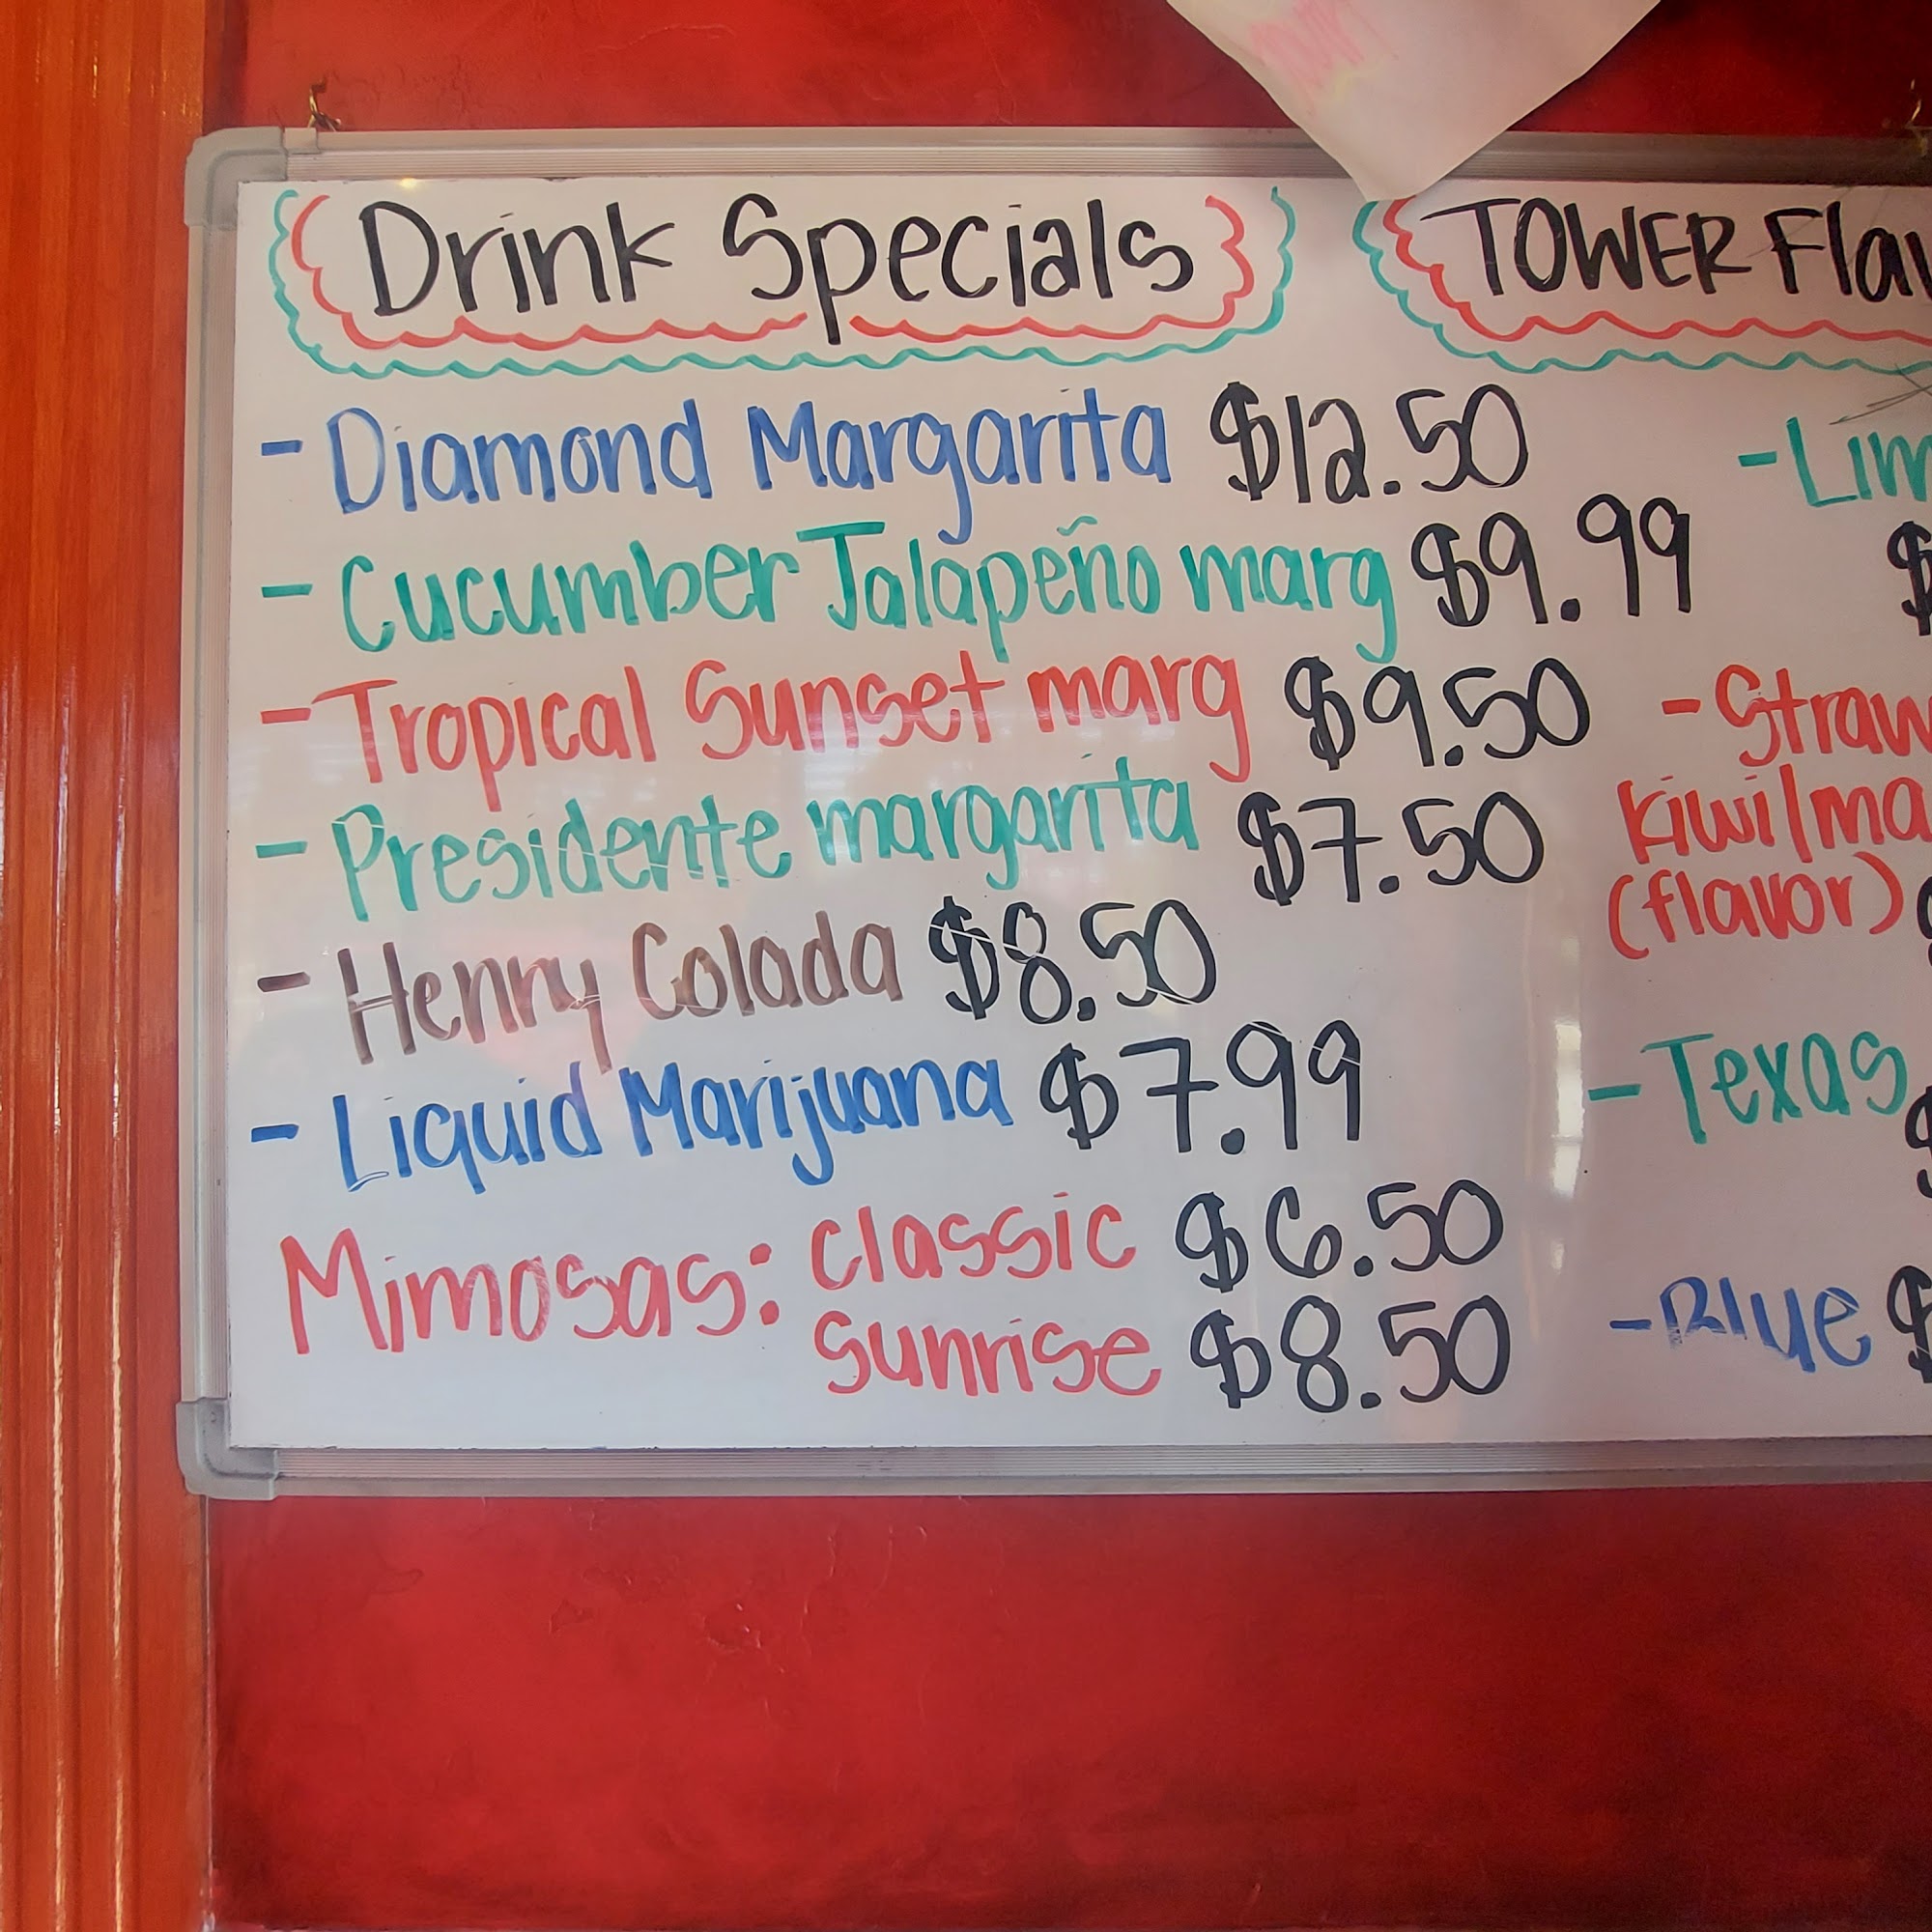 Drink Specials
- Diamond Margarita $12.50
- Cucumber Jalapeño marg $9.99
- Tropical Sunset marg $9.50
- Presidente margarita $7.50
- Henny Colada $8.50
- Liquid Marijuana $7.99
Mimosas: Classic $6.50
Sunrise $8.50
TOWER
- Texas
- Blue $
(flavor)